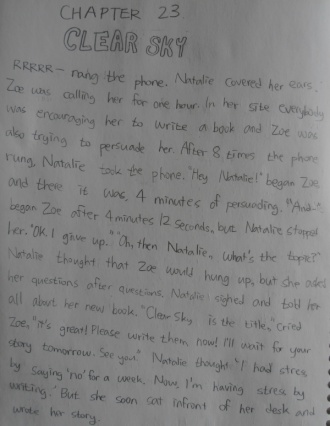 CHAPTER 23.
CLEAR SKY
RRRRR— rang the phone. Natalie covered her ears.
Zoe was calling her for one hour. In her site everybody
was encouraging her to write a book and Zoe was
also trying to persuade her. After 8 times the phone
rung, Natalie took the phone. "Hey Natalie!" began Zoe
and there it was, 4 minutes of persuading. "And-"
began Zoe after 4 minutes 12 seconds, but Natalie stopped
her. "OK I give up." "Oh, then Natalie, what's the topic?"
Natalie thought that Zoe would hung up, but she asked
her questions after questions. Natalie sighed and told her
all about her new book. "Clear Sky is the title," cried
Zoe, "It's great! Please write them now! I'll wait for your
story tomorrow. See you." Natalie thought. 'I had stress
by saying 'no' for a week. Now, I'm having stress by
writing.' But she soon sat infront of her desk and
wrote her story.